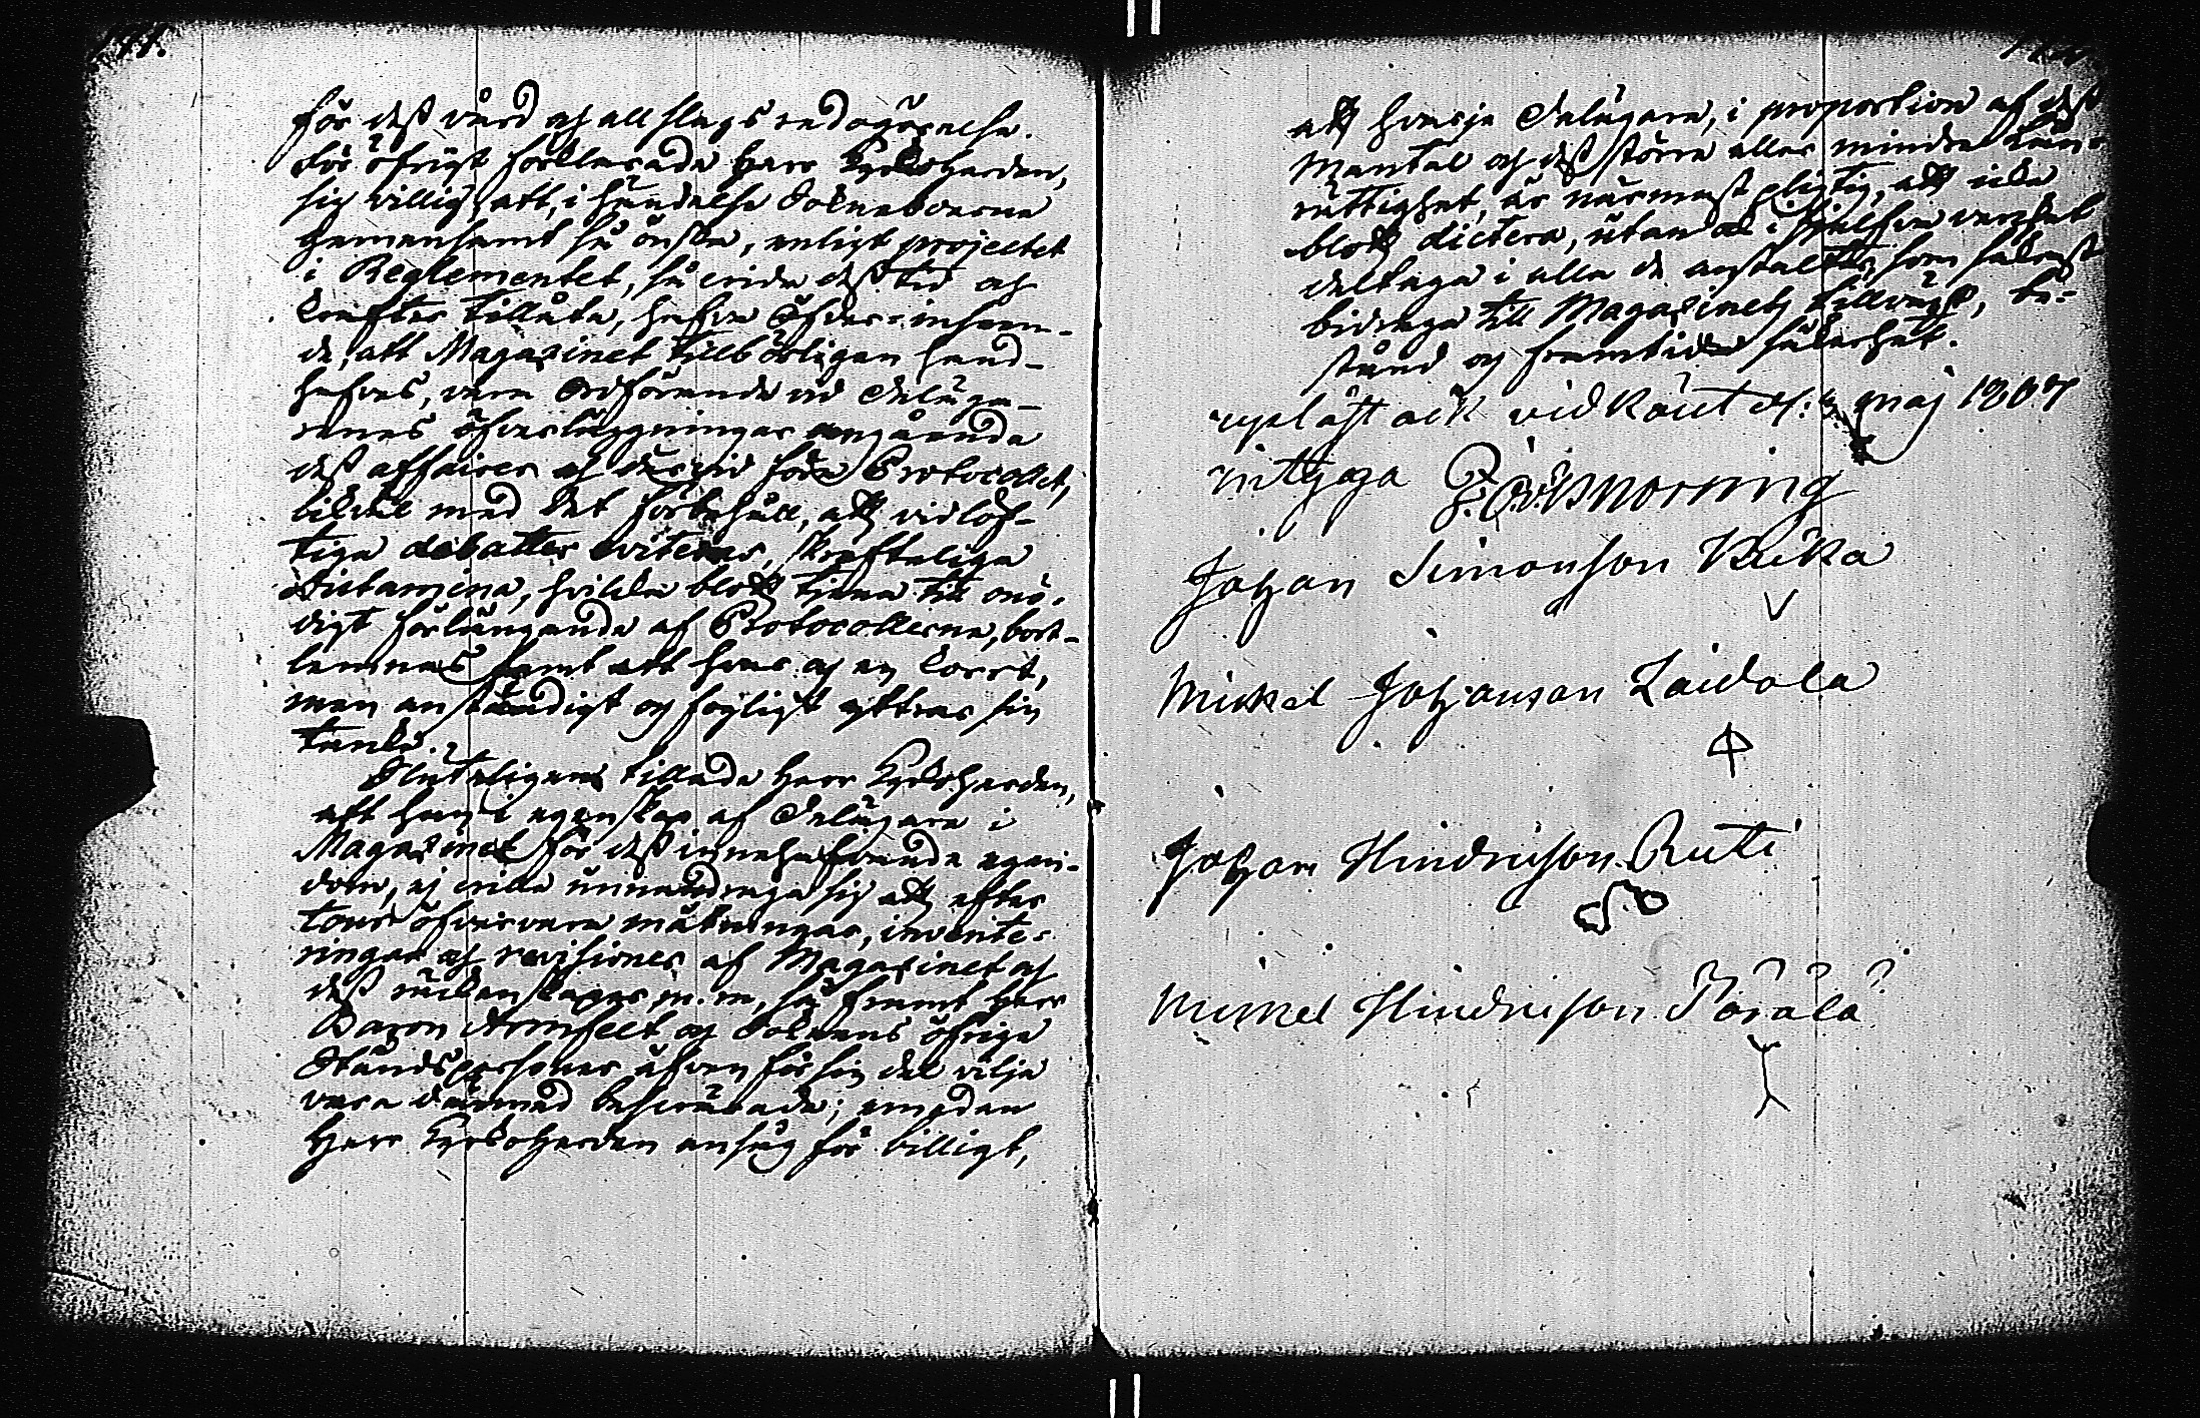 för dess vård och all slags redogörelse.
För öfrigt förklarade Herr Kyrkoherden,
sig villig, att, i händelse Sokneboerne
gemensamt så önska, enligt projectet
i Reglementet, så vida dess tid och
krafter tillåta, hafva öfver-inseen-
de, att Magazinet tillbörligen hand-
hafves, vara Ordförande vid Delega-
rnes öfverläggningar angående
dess affairer och dervid föra Protocollet,
likväl med det förbehåll, att vidlöf-
tiga debatter eviteras, skrifteliga
Dictamina, hvilka blott tjena till onö-
digt förlängande af Protocollerne, bort-
lemnas samt att hvar och en kort,
men anständigt och fogligt yttrar sin
tanke.
Sluteligen tillade Herr Kyrkoherden,
att han i egenskap af Delägare i
Magazinet för dess innehafvande egen-
dom, ej ville undandraga sig att efter
tour öfvervara mätningar, invente-
ringar och revisioner af Magazinet och
dess räkenskaper m. m., så framt Herr
Baron Armfelt och Soknens öfriga
Ståndspersoner äfven för sin del vilja
vara dermed besvärade; emedan
Herr Kyrkoherden ansåg för billigt,
att hvarje Delägare, i proportion af dess
Mantal och dess större eller mindre
rättighet, är närmast pligtig, att icke
blott dictera, utan ock i sjelfva verket
deltaga i alla de anstalter, som säkrast
bidraga till Magazinets tillväxt, be-
stånd och framtida säkerhet.
uplåst ock vidkänt d. maj 1807
vittgaga
Johan Simonson Kuka
Mickel Johanson Laidola
Johan Hindricson Ruti
Mickel Hindricson Pörälä